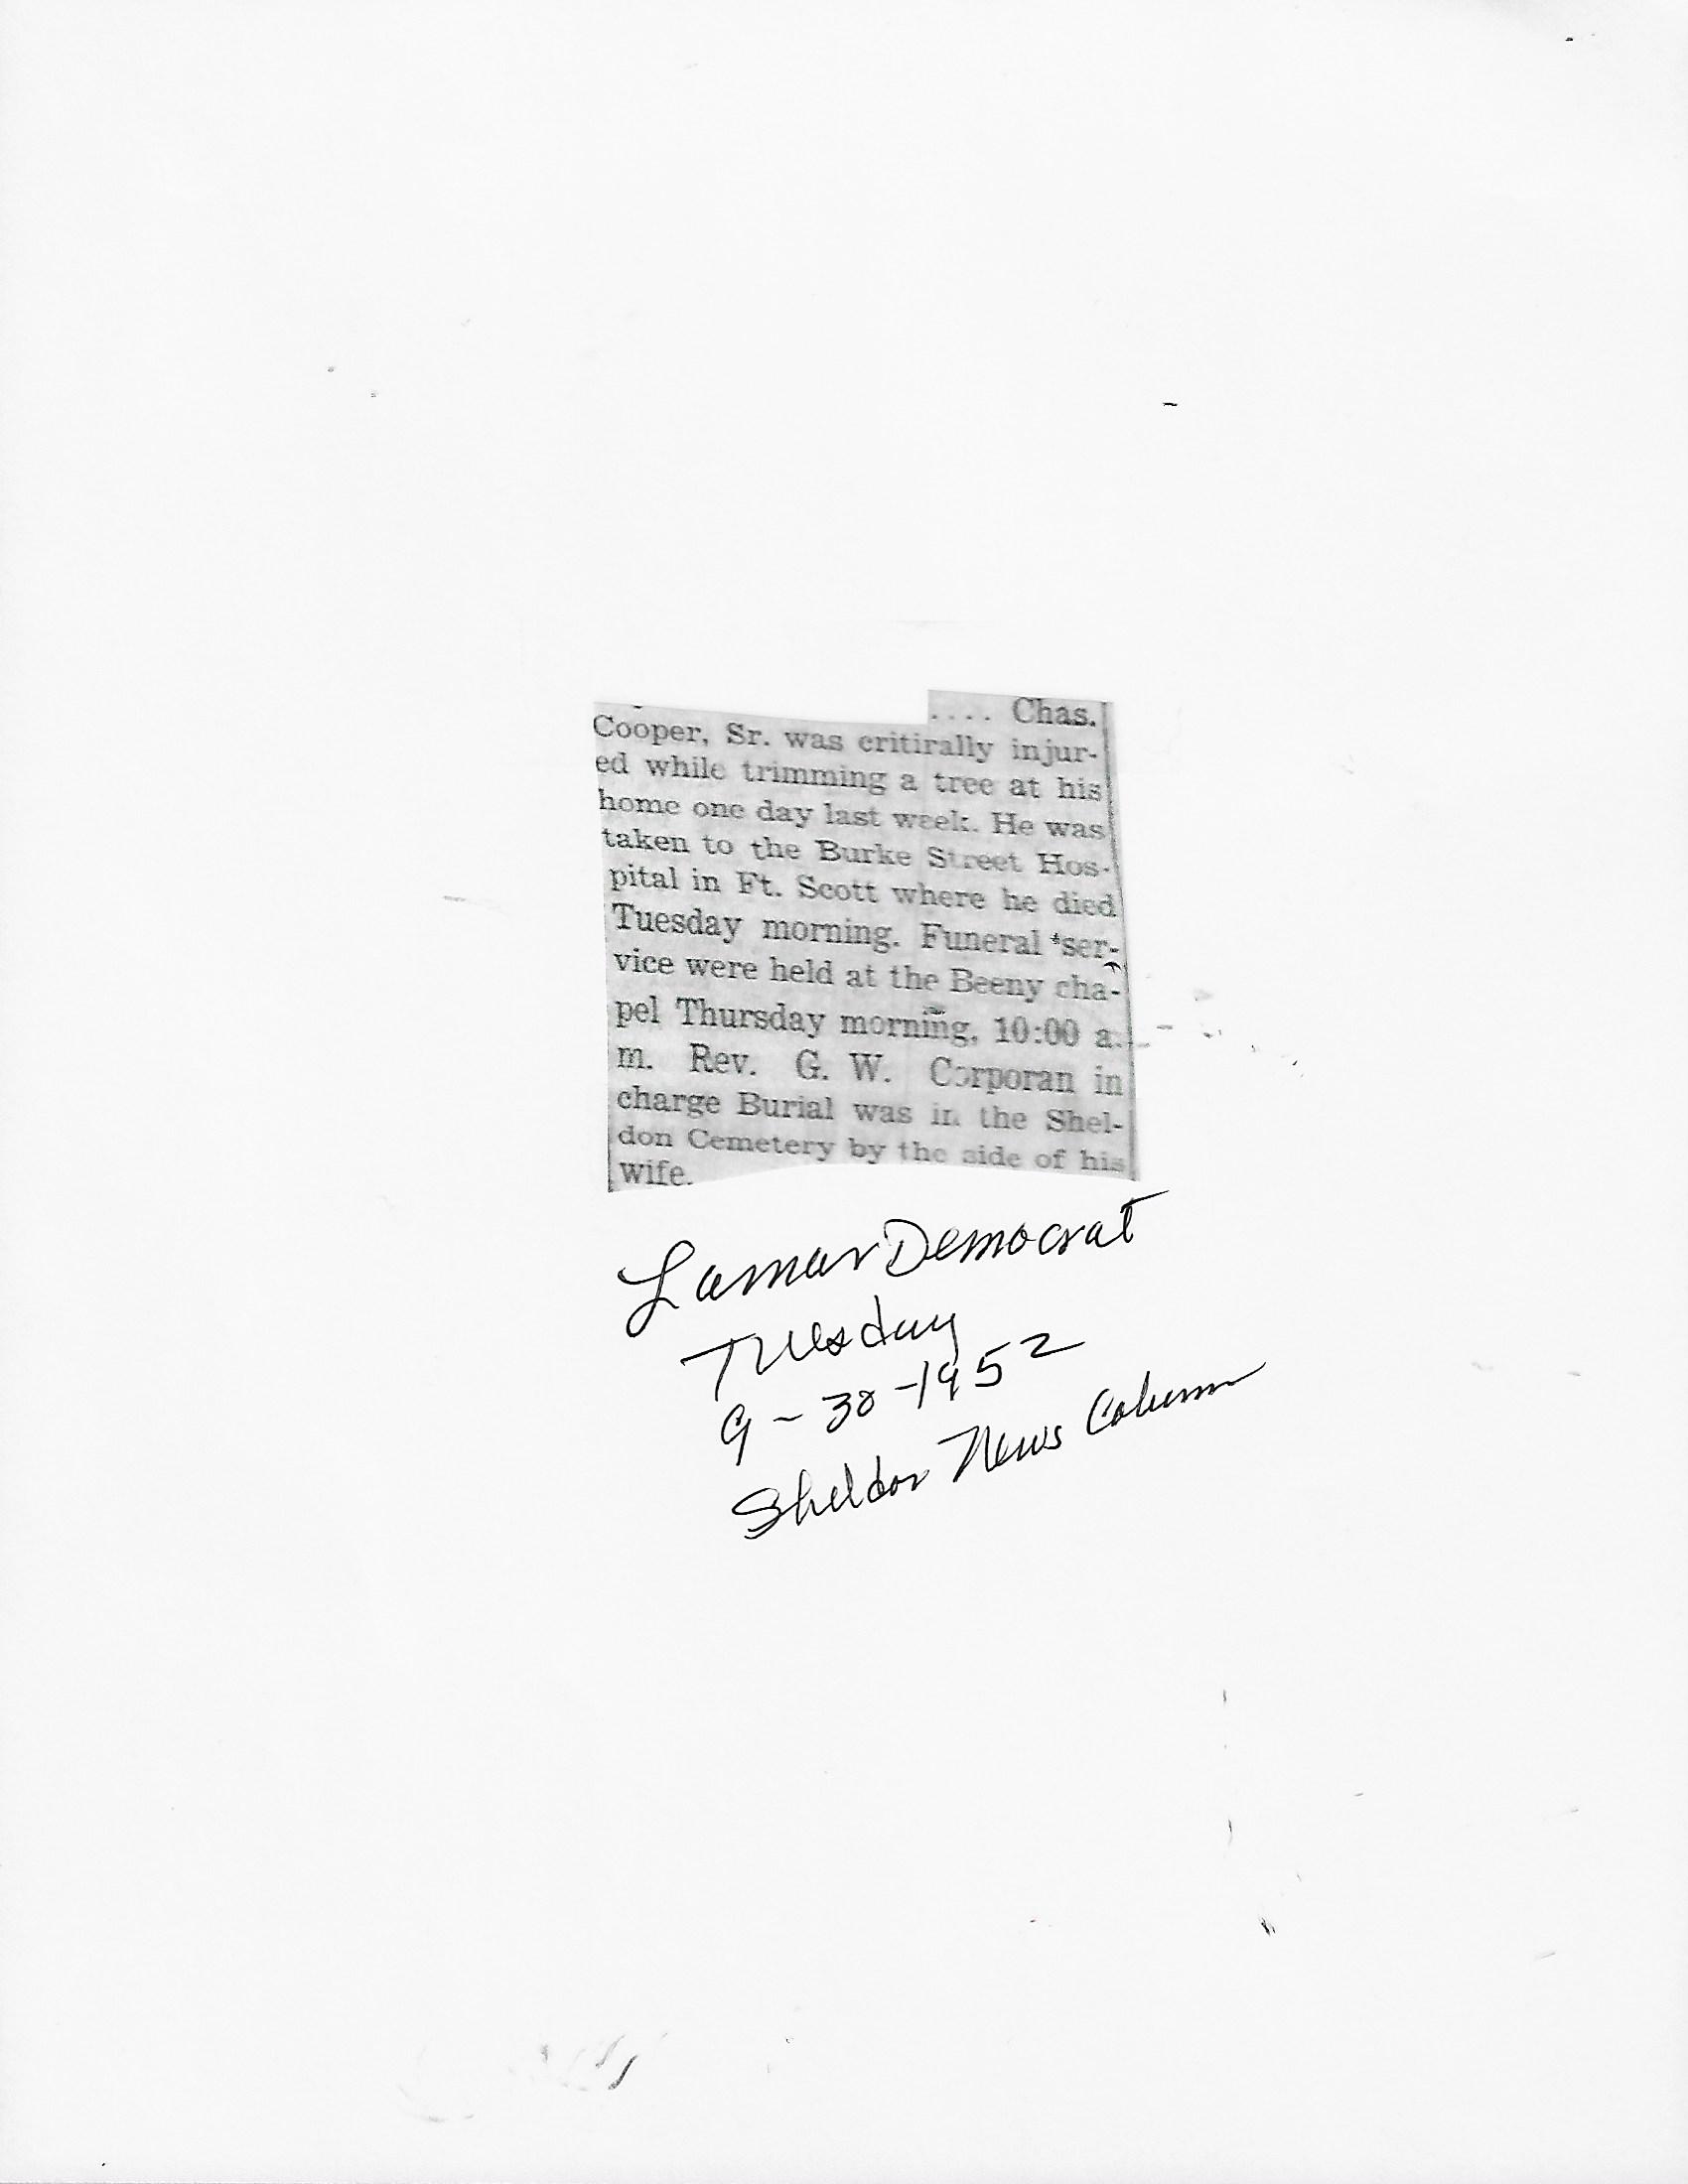 .... Chas.
Cooper, Sr. was critirally injur-
ed while trimming a tree at his
home one day last week. He was
taken to the Burke Street Hos-
pital in Ft. Scott where he died
Tuesday morning. Funeral ser-
vice were held at the Beeny cha-
pel Thursday morning, 10:00 a.
m. Rev. G. W. Corporan in
charge Burial was in the Shel-
don Cemetery by the side of his
wife.
Lamar Democrat
Tuesday
9-30-1952
Sheldon News Column